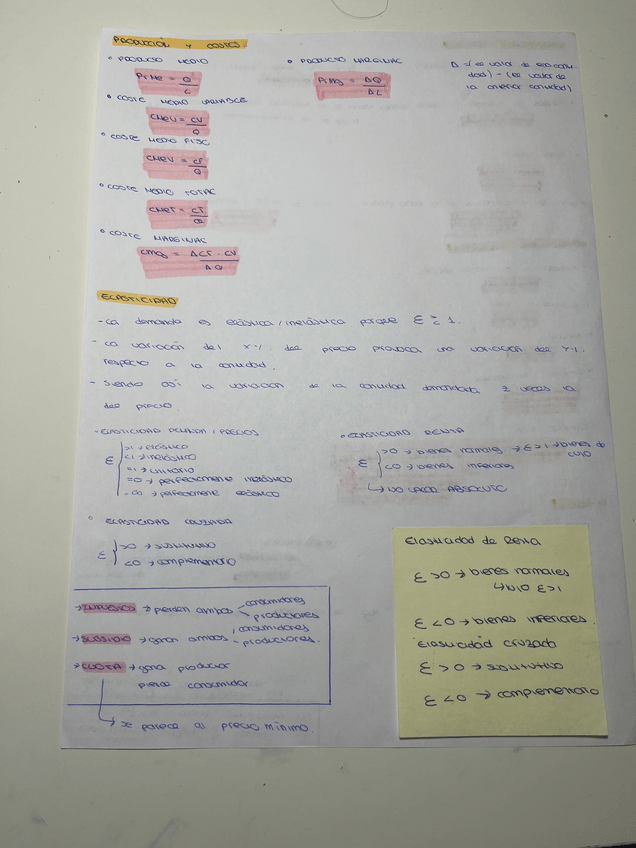 PRODUCCIÓN Y COSTES.
• PRODUCTO MEDIO
PrMe = Q / L
• PRODUCTO MARGINAL
PrMg = ΔQ / ΔL
Δ = (el valor de esa canti-
dad) - (el valor de
la anterior cantidad)
• COSTE MEDIO VARIABLE
CMeV = CV / Q
• COSTE MEDIO FIJO
CMeV = CF / Q
• COSTE MEDIO TOTAL
CMeT = CT / Q
• COSTE MARGINAL
CMg = ΔCT · CV / ΔQ
ELASTICIDAD
- La demanda es elástica / inelástica porque ε ≥ 1.
- La variación del X % del precio provoca una variación del Y %
respecto a la cantidad.
- Siendo así la variación de la cantidad demandada z veces la
del precio.
- ELASTICIDAD DEMANDA / PRECIOS
ε { >1 → elástico
<1 → inelástico
=1 → unitario
=0 → perfectamente inelástico
=∞ → perfectamente elástico
• ELASTICIDAD RENTA
ε { >0 → bienes normales → ε>1 → bienes de
lujo
<0 → bienes inferiores
↳ NO VALOR ABSOLUTO
• ELASTICIDAD CRUZADA
ε { >0 → sustitutivo
<0 → complementario
→ IMPUESTO → pierden ambos consumidores
productores
→ SUBSIDIO → ganan ambos consumidores
productores.
→ CUOTA → gana productor
pierde consumidor
→ se parece al precio mínimo.
Elasticidad de Renta
ε >0 → bienes normales
↳ lujo ε>1
ε <0 → bienes inferiores.
Elasticidad cruzada
ε >0 → sustitutivo
ε <0 → complementario